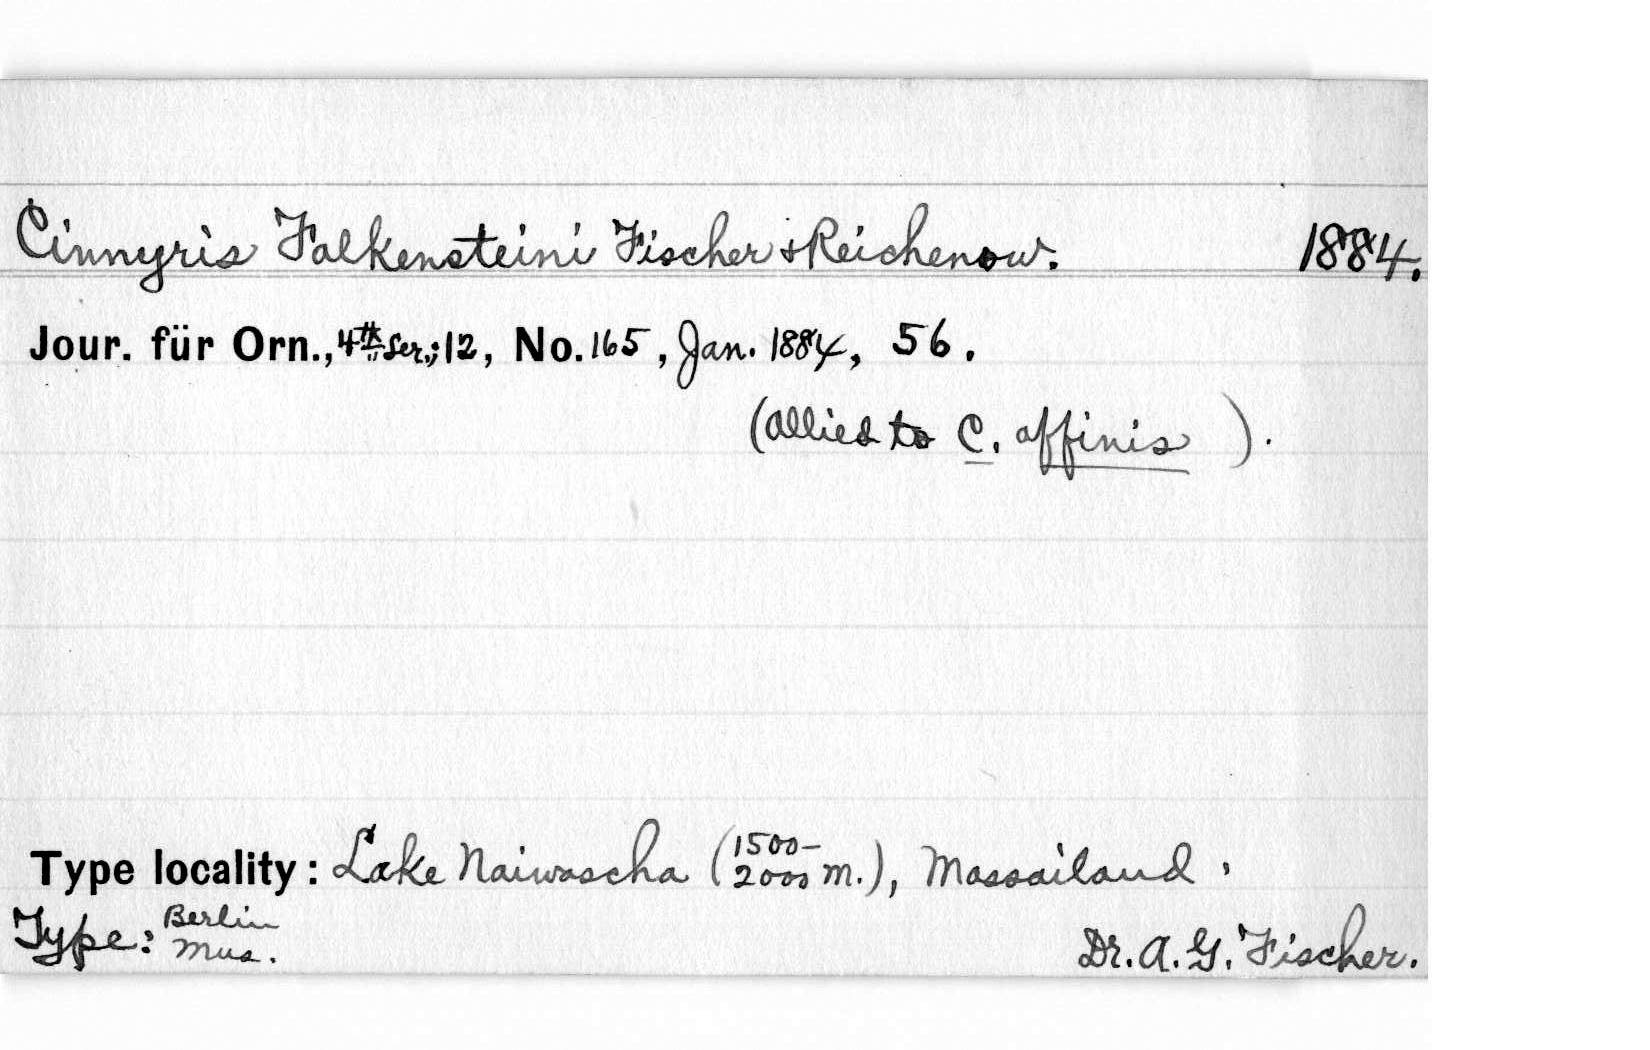 Cinnyris Falkensteini Fischer & Reichenow. 1884.
Jour. für Orn., 4th Ser.; 12, No. 165, Jan. 1884, 56.
(Allied to C. affinis ).
Type locality: Lake Naiwascha (1500–2000 m.), Massailand,
Type: Berlin Mus. Dr. A. G. Fischer.